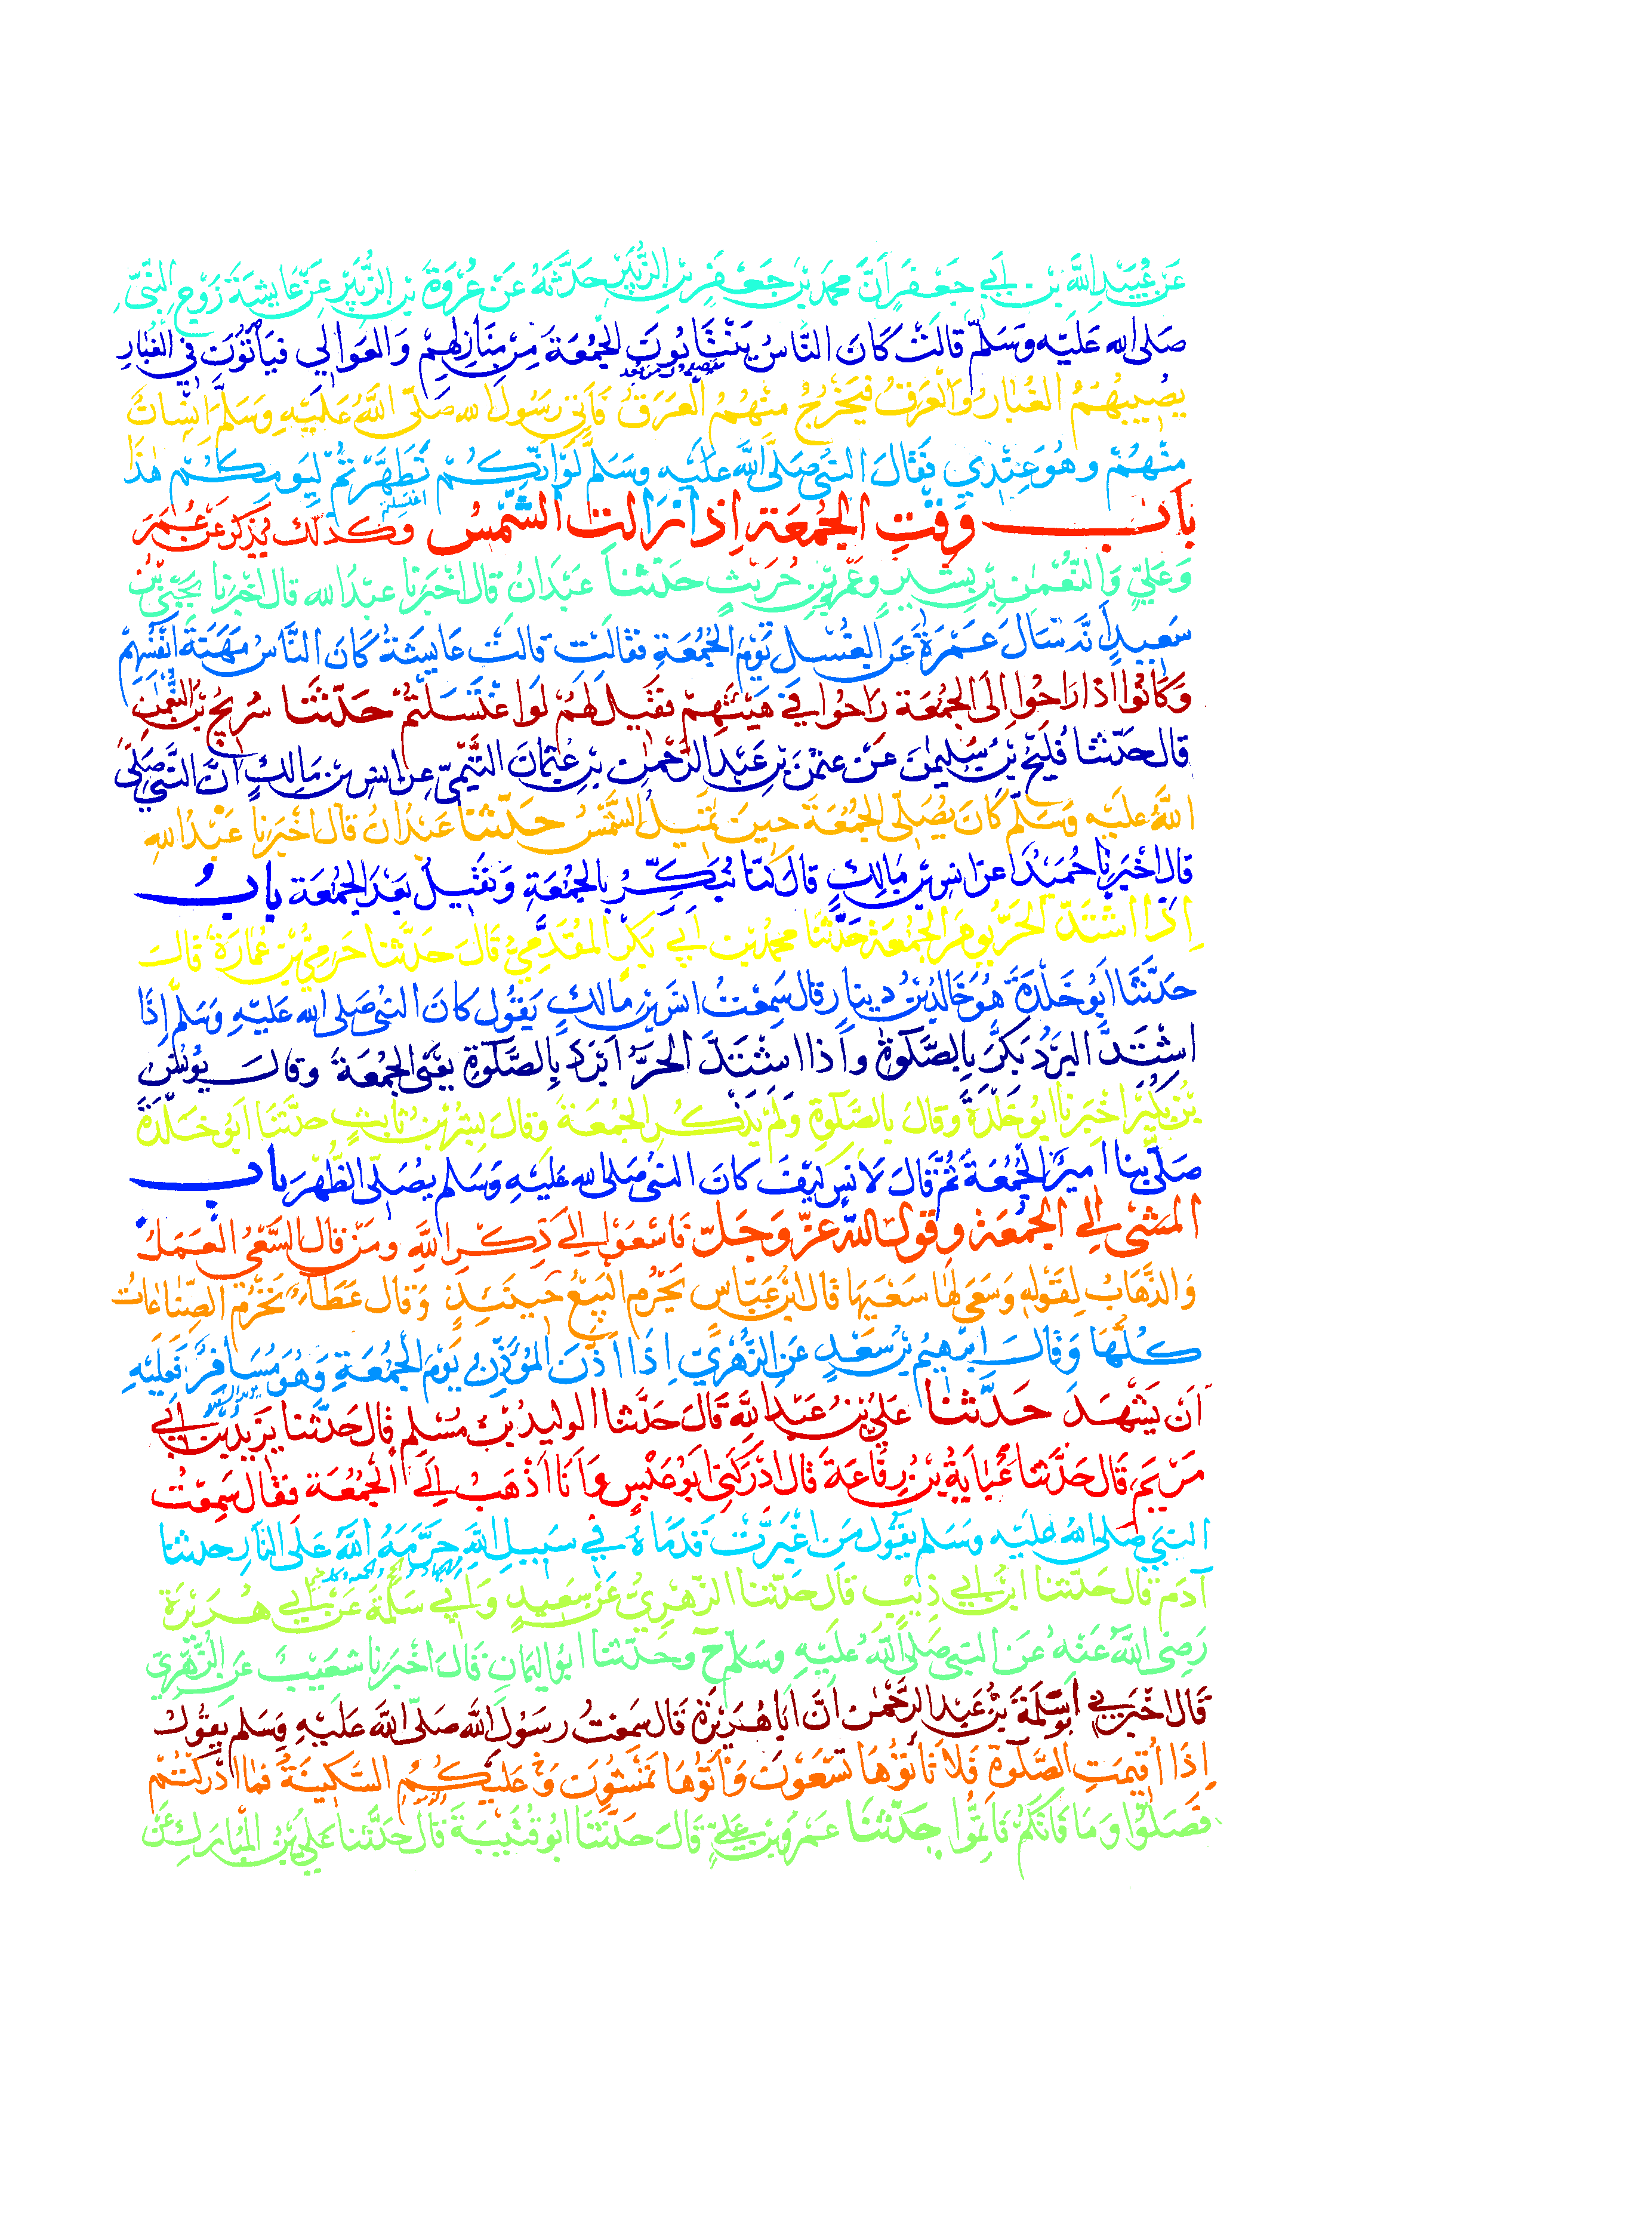 عَنْ عُبَيْدِ اللَّهِ بْنِ أَبِي جَعْفَرٍ أَنَّ مُحَمَّدَ بْنَ جَعْفَرِ بْنِ الزُّبَيْرِ حَدَّثَهُ عَنْ عُرْوَةَ بْنِ الزُّبَيْرِ عَنْ عَايِشَةَ زَوْجِ النَّبِيِّ
صَلى الله عَلَيْهِ وَسَلَّمَ قَالَتْ كَانَ النَّاسُ يَنْتَابُونَ الْجُمُعَةَ مِنْ مَنَازِلِهِمْ وَالعَوَالِي فَيَأْتُونَ فِي الْغُبَارِ
يُصِيبُهُمُ الْغُبَارُ وَالْعَرَقُ فَيَخْرُجُ مِنْهُمُ الْعَرَقُ فَأَتَى رَسُولَ الله صَلَّى اللَّهُ عَلَيْهِ وَسَلَّمَ إِنْسَانٌ
مِنْهُمْ وَهُوَ عِنْدِي فَقَالَ النَّبِيُّ صَلَّى اللَّهُ عَلَيْهِ وَسَلَّمَ لَوْ أَنَّكُمْ تَطَهَّرْتُمْ لِيَوْمِكُمْ هٰذَا
بَابُ وَقْتِ الْجُمُعَةِ إِذَا زَالَتِ الشَّمْسُ وَكَذٰلِكَ يُذْكَرُ عَنْ عُمَرَ
وَعَلِيٍّ وَالنُّعْمٰنِ بْنِ بَشِيرٍ وَعَمْرِو بْنِ حُرَيْثٍ حَدَّثَنَا عَبْدَانُ قَالَ أَخْبَرَنَا عَبْدُ الله قَالَ أَخْبَرَنَا يَحْيَى بْنُ
سَعِيدٍ أَنَّهُ سَأَلَ عَمْرَةَ عَنِ الْغُسْلِ يَوْمَ الْجُمُعَةِ فَقَالَتْ قَالَتْ عَايِشَةُ كَانَ النَّاسُ مَهَنَةَ أَنْفُسِهِمْ
وَكَانُوا إِذَا رَاحُوا إِلَى الْجُمُعَةِ رَاحُوا فِي هَيْئَتِهِمْ فَقِيلَ لَهُمْ لَوِ اغْتَسَلْتُمْ حَدَّثَنَا سُرَيْجُ بْنُ النُّعْمٰنِ
قَالَ حَدَّثَنَا فُلَيْحُ بْنُ سُلَيْمٰنَ عَنْ عُثْمٰنَ بْنِ عَبْدِ الرَّحْمٰنِ بْنِ عُثْمَانَ التَّيْمِيِّ عَنْ أَنَسِ بْنِ مَالِكٍ أَنَّ النَّبِيَّ صَلَّى
اللَّهُ عَلَيْهِ وَسَلَّمَ كَانَ يُصَلِّي الْجُمُعَةَ حِينَ تَمِيلُ الشَّمْسُ حَدَّثَنَا عَبْدَانُ قَالَ أَخْبَرَنَا عَبْدُ اللهِ
قَالَ أَخْبَرَنَا حُمَيْدٌ عَنْ أَنَسِ بْنِ مَالِكٍ قَالَ كُنَّا نُبَكِّرُ بِالْجُمُعَةِ وَنَقِيلُ بَعْدَ الْجُمُعَةِ بَابُ
إِذَا اشْتَدَّ الْحَرُّ يَوْمَ الْجُمُعَةِ حَدَّثَنَا مُحَمَّدُ بْنُ أَبِي بَكْرٍ الْمُقَدَّمِيُّ قَالَ حَدَّثَنَا حَرَمِيُّ بْنُ عُمَارَةَ قَالَ
حَدَّثَنَا أَبُو خَلْدَةَ هُوَ خَالِدُ بْنُ دِينَارٍ قَالَ سَمِعْتُ أَنَسَ بْنَ مَالِكٍ يَقُولُ كَانَ النَّبِيُّ صَلى الله عَلَيْهِ وَسَلَّمَ إِذَا
اشْتَدَّ الْبَرْدُ بَكَّرَ بِالصَّلٰوةِ وَإِذَا اشْتَدَّ الْحَرُّ أَبْرَدَ بِالصَّلٰوةِ يَعْنِي الْجُمُعَةَ وَقَالَ يُونُسُ
بْنُ بُكَيْرٍ أَخْبَرَنَا أَبُو خَلْدَةَ وَقَالَ بِالصَّلٰوةِ وَلَمْ يَذْكُرِ الْجُمُعَةَ وَقَالَ بِشْرُ بْنُ ثَابِتٍ حَدَّثَنَا أَبُو خَلْدَةَ
صَلَّى بِنَا أَمِيرٌ الْجُمُعَةَ ثُمَّ قَالَ لِأَنَسٍ كَيْفَ كَانَ النَّبِيُّ صَلى الله عَلَيْهِ وَسَلم يُصَلِّي الظُّهْرَ بَابُ
الْمَشْيِ إِلَى الْجُمُعَةِ وَقَوْلِ اللَّهِ عَزَّ وَجَلَّ فَاسْعَوْا إِلَى ذِكْرِ اللَّهِ وَمَنْ قَالَ السَّعْيُ الْعَمَلُ
وَالذَّهَابُ لِقَوْلِهِ وَسَعَى لَهَا سَعْيَهَا قَالَ ابْنُ عَبَّاسٍ يَحْرُمُ الْبَيْعُ حِينَئِذٍ وَقَالَ عَطَاءٌ تَحْرُمُ الصِّنَاعَاتُ
كُلُّهَا وَقَالَ إِبْرٰهِيمُ بْنُ سَعْدٍ عَنِ الزُّهْرِيِّ إِذَا أَذَّنَ الْمُؤَذِّنُ يَوْمَ الْجُمُعَةِ وَهُوَ مُسَافِرٌ فَعَلَيْهِ
أَنْ يَشْهَدَ حَدَّثَنَا عَلِيُّ بْنُ عَبْدِ اللَّهِ قَالَ حَدَّثَنَا الْوَلِيدُ بْنُ مُسْلِمٍ قَالَ حَدَّثَنَا يَزِيدُ بْنُ أَبِي
مَرْيَمَ قَالَ حَدَّثَنَا عَبَايَةُ بْنُ رِفَاعَةَ قَالَ أَدْرَكَنِي أَبُو عَبْسٍ وَأَنَا أَذْهَبُ إِلَى الْجُمُعَةِ فَقَالَ سَمِعْتُ
النَّبِيَّ صَلى اللهُ عَلَيْهِ وَسَلم يَقُولُ مَنِ اغْبَرَّتْ قَدَمَاهُ فِي سَبِيلِ اللَّهِ حَرَّمَهُ اللَّهُ عَلَى النَّارِ حدثنا
آدَمُ قَالَ حَدَّثَنَا ابْنُ أَبِي ذِئْبٍ قَالَ حَدَّثَنَا الزُّهْرِيُّ عَنْ سَعِيدٍ وَأَبِي سَلَمَةَ عَنْ أَبِي هُرَيْرَةَ
رَضِيَ اللَّهُ عَنْهُ عَنِ النَّبِيِّ صَلَّى اللَّهُ عَلَيْهِ وَسَلَّمَ ح وَحَدَّثَنَا أَبُو الْيَمَانِ قَالَ أَخْبَرَنَا شُعَيْبٌ عَنِ الزُّهْرِيِّ
قَالَ أَخْبَرَنِي أَبُو سَلَمَةَ بْنُ عَبْدِ الرَّحْمٰنِ أَنَّ أَبَا هُرَيْرَةَ قَالَ سَمِعْتُ رَسُولَ اللَّهِ صَلَّى اللَّهُ عَلَيْهِ وَسَلم يَقُولُ
إِذَا أُقِيمَتِ الصَّلٰوةُ فَلَا تَأْتُوهَا تَسْعَوْنَ وَأْتُوهَا تَمْشُونَ وَعَلَيْكُمُ السَّكِينَةُ فَمَا أَدْرَكْتُمْ
فَصَلُّوا وَمَا فَاتَكُمْ فَأَتِمُّوا حَدَّثَنَا عَمْرُو بْنُ عَلِيٍّ قَالَ حَدَّثَنَا أَبُو قُتَيْبَةَ قَالَ حَدَّثَنَا عَلِيُّ بْنُ الْمُبَارَكِ عَنْ